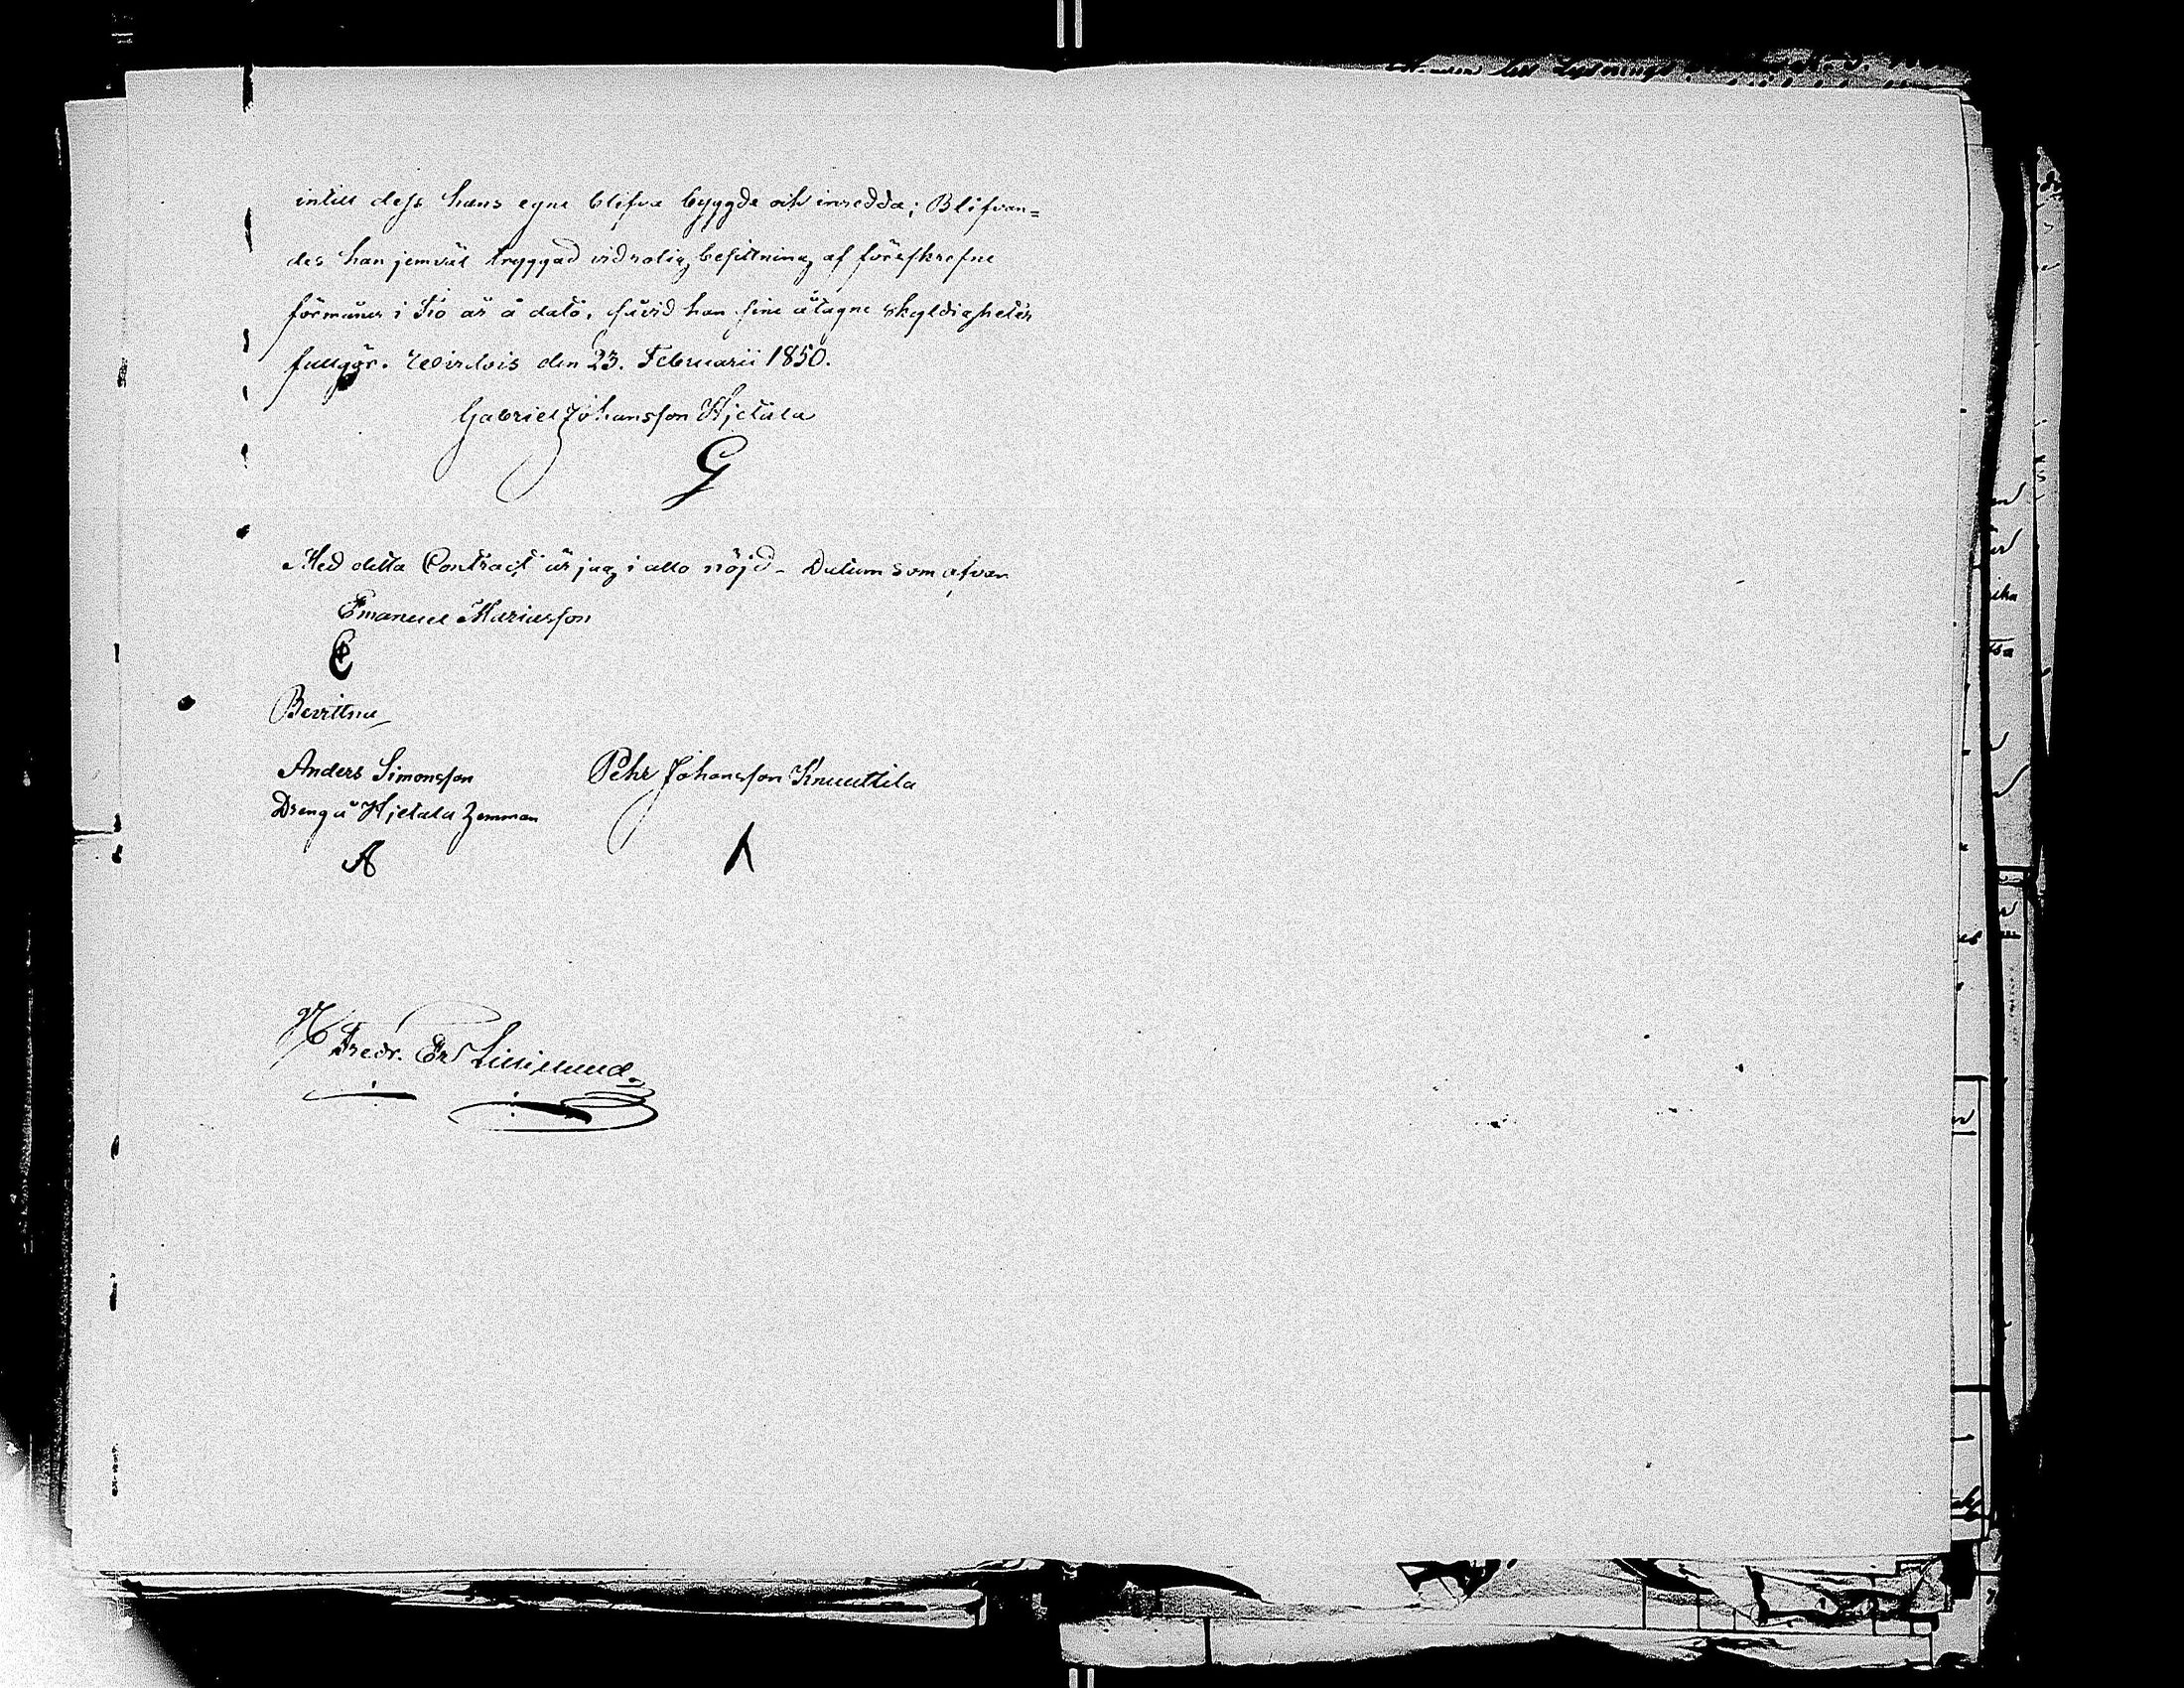 intill dess hans egne blifva byggde och inredda; Blifvan=
des han jemväl tryggad vid rolig besittning af föreskrefne
förmåner i Tio år à dato, såvid han sine åtagne skyldigheter
fullgör. Wirdois den 23. Februarii 1850.
Gabriel Johansson Hjetala
G
Med detta Contract är jag i allo nöjd. Datum som ofvan
Emanuel Mariasson
E
Bevittna
Anders Simonsson Pehr Johansson Knuuttila
Dreng å Hjetala Hemman
A
Fredr. Er Lillimund